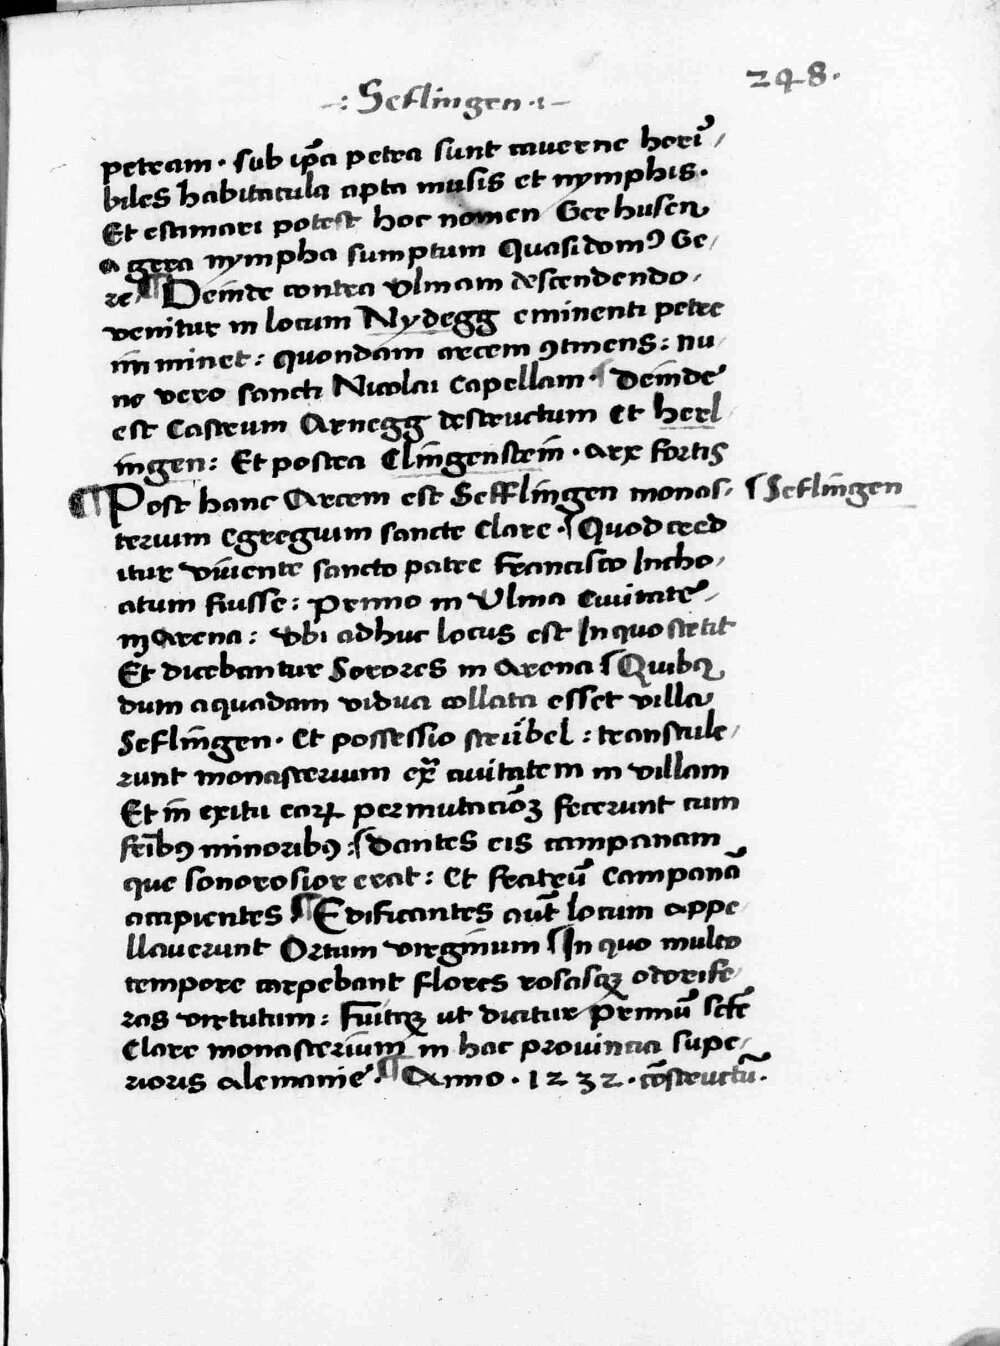 248.
-: Seflingen .:-
petram . sub ip̄a petra sunt cauerne horri̾ /
biles habitacula apta musis et nymphis .
Et estimari potest hoc nomen Gerhusen
a gera nympha sumptum Quasi domꝰ Ge /
re ¶ Deinde contra Vlmam descendendo .
venitur in locum Nydegg eminenti petre
imminet : quondam arcem ꝯtinens : nu /
nc vero sancti Nicolai Capellam . ¶ Deinde
est Castrum Arnegg destructum Et herl /
ingen : Et postea Clingenstein . arx fortis
¶ Post hanc Arcem est Sefflingen monas . ⌠ Seflingen
terium Egregium sancte Clare . ⌠ Quod cred
itur viuente sancto patre Francisco Incho /
atum fuisse : Primo in Vlma Ciuitate /
in Arena : Vbi adhuc locus est In quo stetit
Et dicebantur Sorores in Arena ⌠ Quibꝫ
dum a quadam vidua collata esset villa
Seflingen . Et possessio strübel : transtule /
runt monasterium ex̄ ciuitatem in villam
Et in exitu earꝝ permutacioꝫ fecerunt cum
fribꝰ minoribꝰ : ⌠ dantes eis campanam
que sonorosior erat : Et fratrū Campanā
accipientes ¶ Edificantes aūt locum appe /
llauerunt Ortum virginum ⌠ In quo multo
tempore carpebant flores rosasqꝫ odorife /
ras virtutum : Fuitqꝫ ut dicitur Primū scē
Clare monasterium in hac prouincia supe /
rioris Alemanie . ¶ Anno . 1232 . cōstructū .